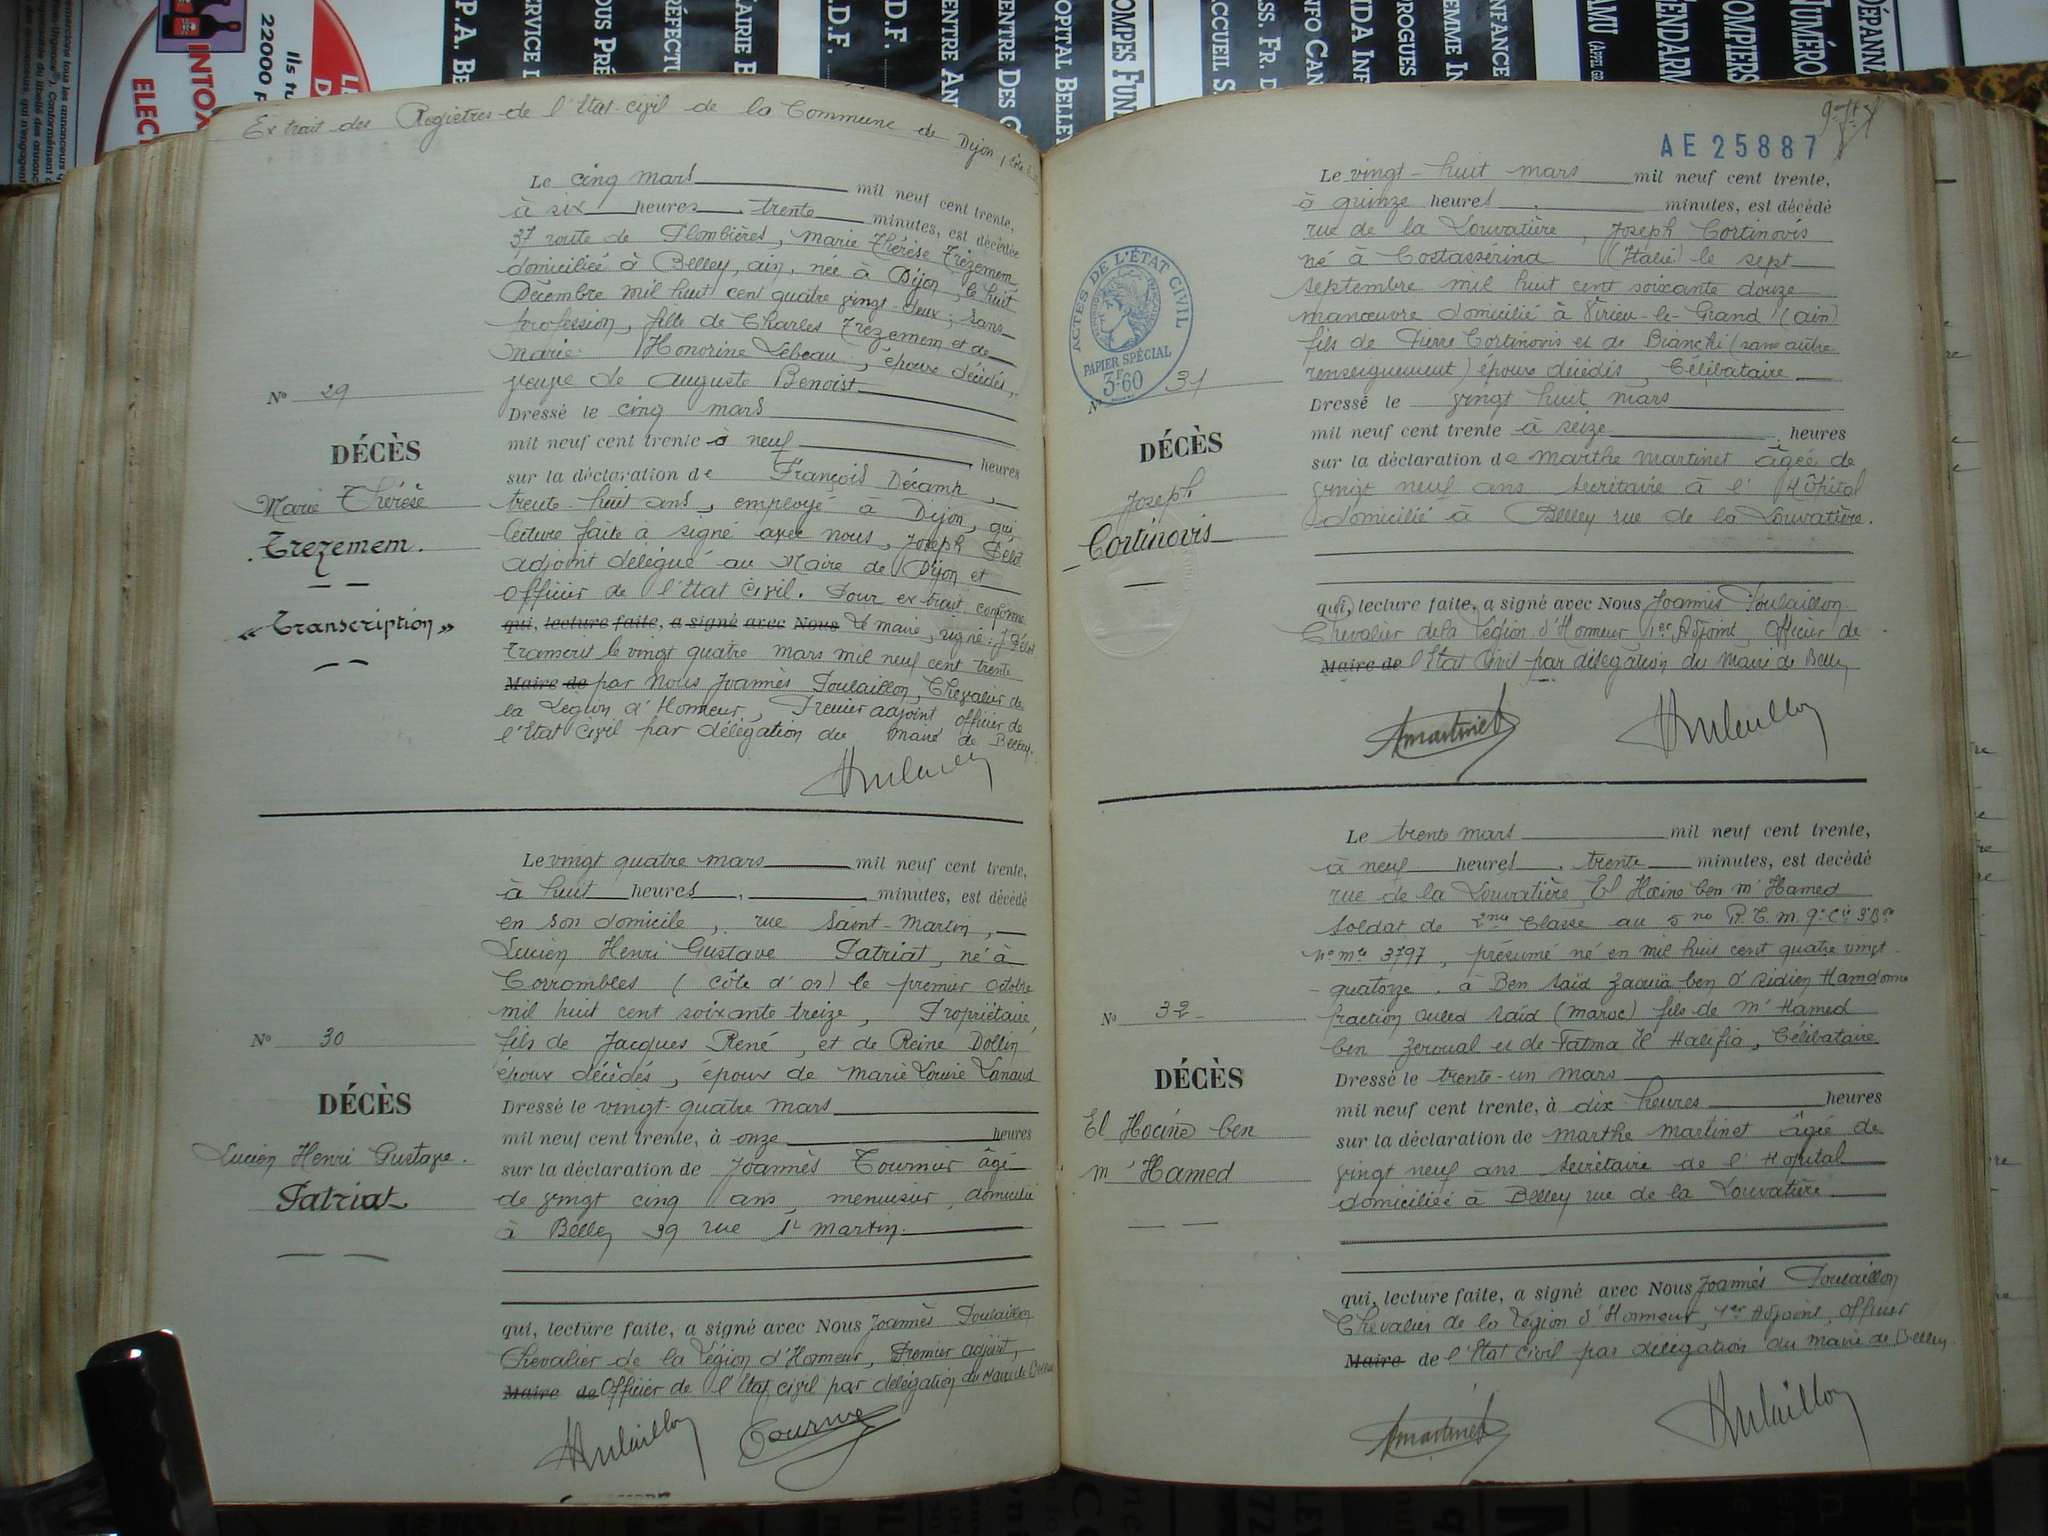 Extrait des Registres de l'Etat-civil de la Commune de Dijon
Le cinq mars mil neuf cent trente,
à six heures, trente minutes, est décédée
37 route de Plombières, Marie Thérèse Trezemem
domiciliée à Belley, ain, née à Dijon, le huit
Décembre mil huit cent quatre vingt-deux; sans
profession, fille de Charles Trezemem et de
Marie Honorine Lebeau, époux décédés,
veuve de Auguste Benoist
N° 29
Dressé le cinq mars
mil neuf cent trente à neuf heures
DÉCÈS
Marie Thérèse
Trezemem.
"Transcription"
sur la déclaration de François Décamp,
trente-huit ans, employé à Dijon, qui,
lecture faite à signé avec nous, Joseph
adjoint délégué au Maire de Dijon et
Officier de l'Etat Civil. Pour extrait conforme
qui, lecture faite, a signé avec Nous Le maire, signé:
Transcrit le vingt quatre mars mil neuf cent trente
Maire de par Nous Joannès Poulaillon, Chevalier de
la Légion d'Honneur, Premier adjoint officier de
l'Etat Civil par délégation du Maire de Belley.
Le vingt quatre mars mil neuf cent trente,
à huit heures, minutes, est décédé
en son domicile, rue Saint-Martin,
Lucien Henri Gustave Patriat, né à
Corrombles (côte d'or) le premier Octobre
mil huit cent soixante treize, Propriétaire,
fils de Jacques René, et de Reine Dollin
époux décédés, époux de Marie Louise Lanaud
N° 30
DÉCÈS
Lucien Henri Gustave.
Patriat
Dressé le vingt-quatre mars
mil neuf cent trente, à onze heures
sur la déclaration de Joannès Tournier âgé
de vingt cinq ans, menuisier, domicilié
à Belley 39 rue St Martin.
qui, lecture faite, a signé avec Nous Joannès Poulaillon
Chevalier de la Légion d'Honneur, Premier adjoint,
Maire de Officier de l'Etat civil par délégation du Maire de Belley
AE 25887
Le vingt-huit mars mil neuf cent trente,
à quinze heures, minutes, est décédé
rue de la Louvatière, Joseph Cortinovis
né à Costassérina (Italie) le sept
septembre mil huit cent soixante douze
manœuvre domicilié à Virieu-le-Grand (ain)
fils de Pierre Cortinovis et de Bianchi (sans autre
renseignement) époux décédés, Célibataire
ACTES DE L'ÉTAT CIVIL
PAPIER SPÉCIAL
3F60
N° 31
DÉCÈS
Joseph
Cortinovis
Dressé le vingt huit mars
mil neuf cent trente à seize, heures
sur la déclaration de Marthe Martinet âgée de
vingt neuf ans secrétaire à l'Hôpital
domicilié à Belley rue de la Louvatière.
qui, lecture faite, a signé avec Nous Joannès Poulaillon
Chevalier de la Légion d'Honneur 1er Adjoint, Officier de
Maire de l'Etat Civil par délégation du Maire de Belley
Le trente mars mil neuf cent trente,
à neuf heures, trente minutes, est decédé
rue de la Louvatière, El Hoine ben M'Hamed
soldat de 2me Classe au 5me R.T.M. 9e Cie 3e Bon
No Mle 3797, présumé né en mil huit cent quatre vingt-
quatorze, à Ben Saïd Zaouïa ben O' Sidien Hamdoune
fraction Ouled Saïd (Maroc) fils de M'Hamed
ben Zeroual et de Fatma El Halifia, Célibataire
N° 32
DÉCÈS
El Hocine ben
M'Hamed
Dressé le trente-un mars
mil neuf cent trente, à dix heures heures
sur la déclaration de Marthe Martinet âgée de
vingt neuf ans secrétaire de l'Hopital
domiciliée à Belley rue de la Louvatière
qui, lecture faite, a signé avec Nous Joannès Poulaillon
Chevalier de la Légion d'Honneur, 1er Adjoint, Officier
Maire de l'Etat Civil par délégation du Maire de Belley